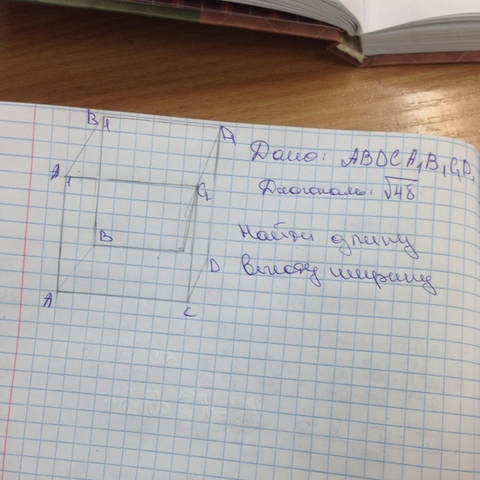 B1
D1
Дано: ABDCA1B1C1D1
A1
C1
Диагональ: √48
B
Найти длину
D
высоту ширину
A
C